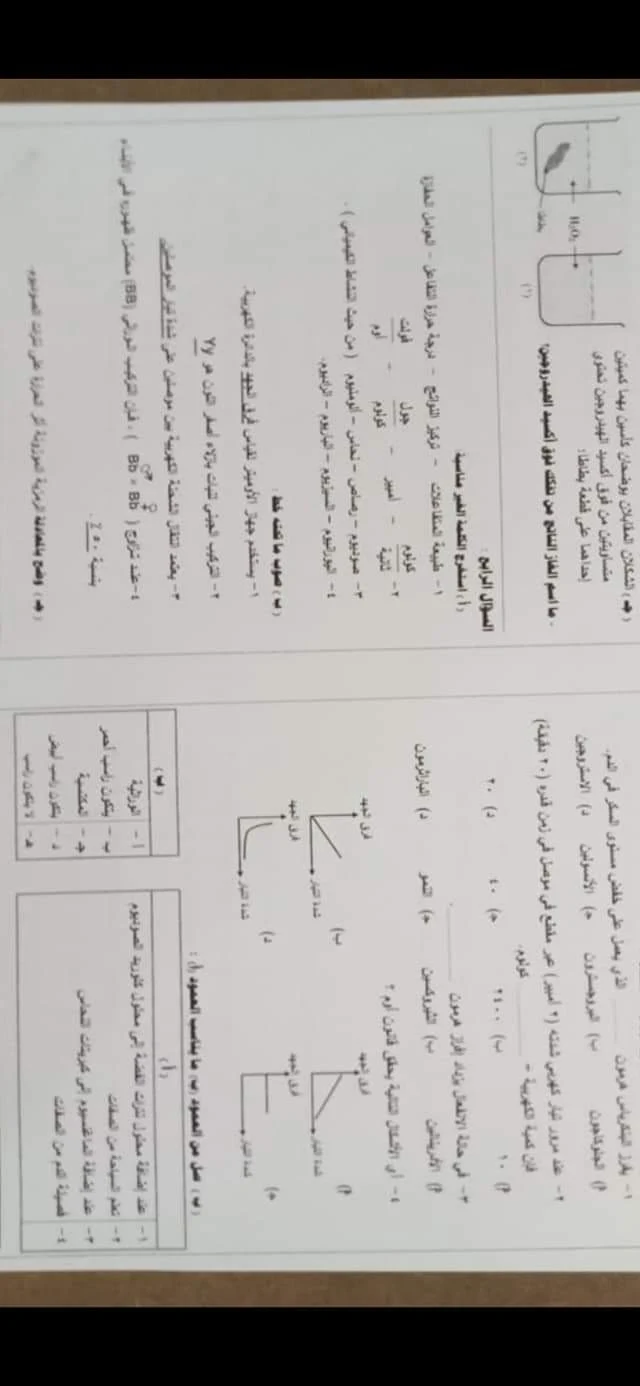 ١- يفرز البنكرياس هرمون ______ الذي يعمل على خفض مستوى السكر في الدم.
أ) الجلوكاجون ب) البروجسترون ج) الأنسولين د) الاستروجين
٢- عند مرور تيار كهربي شدته (٢ أمبير) عبر مقطع في موصل في زمن قدره (٢٠ دقيقة)
فإن كمية الكهربية = ______ كولوم.
أ) ١٠ ب) ٢٤٠٠ ج) ٤٠ د) ٢٠
٣- في حالة الانفعال يزداد إفراز هرمون ______.
أ) الأدرينالين ب) الثيروكسين ج) النمو د) الباراثرمون
٤- أي الأشكال التالية يحقق قانون أوم ؟
أ) فرق الجهد شدة التيار
ب) فرق الجهد شدة التيار
ج) فرق الجهد شدة التيار
د) فرق الجهد شدة التيار
(ب) صل من العمود (ب) ما يناسب العمود (أ) :
(أ) (ب)
١- عند إضافة محلول نترات الفضة إلى محلول كلوريد الصوديوم أ - الوراثية
٢- تعلم السباحة من الصفات ب - يتكون راسب أحمر
٣- عند إضافة الماغنسيوم إلى كبريتات النحاس جـ - المكتسبة
٤- فصيلة الدم من الصفات د - يتكون راسب أبيض
هـ - لا يتكون راسب
(جـ) الشكلان المقابلان يوضحان كأسين بهما كميتين
متساويتين من فوق أكسيد الهيدروجين تحتوى
إحداهما على قطعة بطاطا:
- ما اسم الغاز الناتج من تفكك فوق أكسيد الهيدروجين؟
H₂O₂
بطاطا
(١) (٢)
السؤال الرابع :
(أ) استخرج الكلمة الغير مناسبة
١- طبيعة المتفاعلات - تركيز النواتج - درجة حرارة التفاعل - العوامل الحفازة
٢- كولوم/ثانية - أمبير - جول/كولوم - فولت/أوم
٣- صوديوم - رصاص - نحاس - ألومنيوم ( من حيث النشاط الكيميائي ) .
٤- اليورانيوم - السيزيوم - الباريوم - الراديوم.
(ب) صوب ما تحته خط :
١- يستخدم جهاز الأوميتر لقياس فرق الجهد بالدائرة الكهربية.
٢- التركيب الجيني لنبات بازلاء أصفر اللون هو Yy
٣- يعتمد انتقال الشحنة الكهربية بين موصلين على شدة تيار الموصلين
٤- عند تزاوج ( Bb × Bb ) ، فإن التركيب الوراثي (BB) محتمل ظهوره في الأبناء
♂ ♀
بنسبة ٥٠٪ .
(جـ) وضح بالمعادلة الرمزية الموزونة أثر الحرارة على نترات الصوديوم.